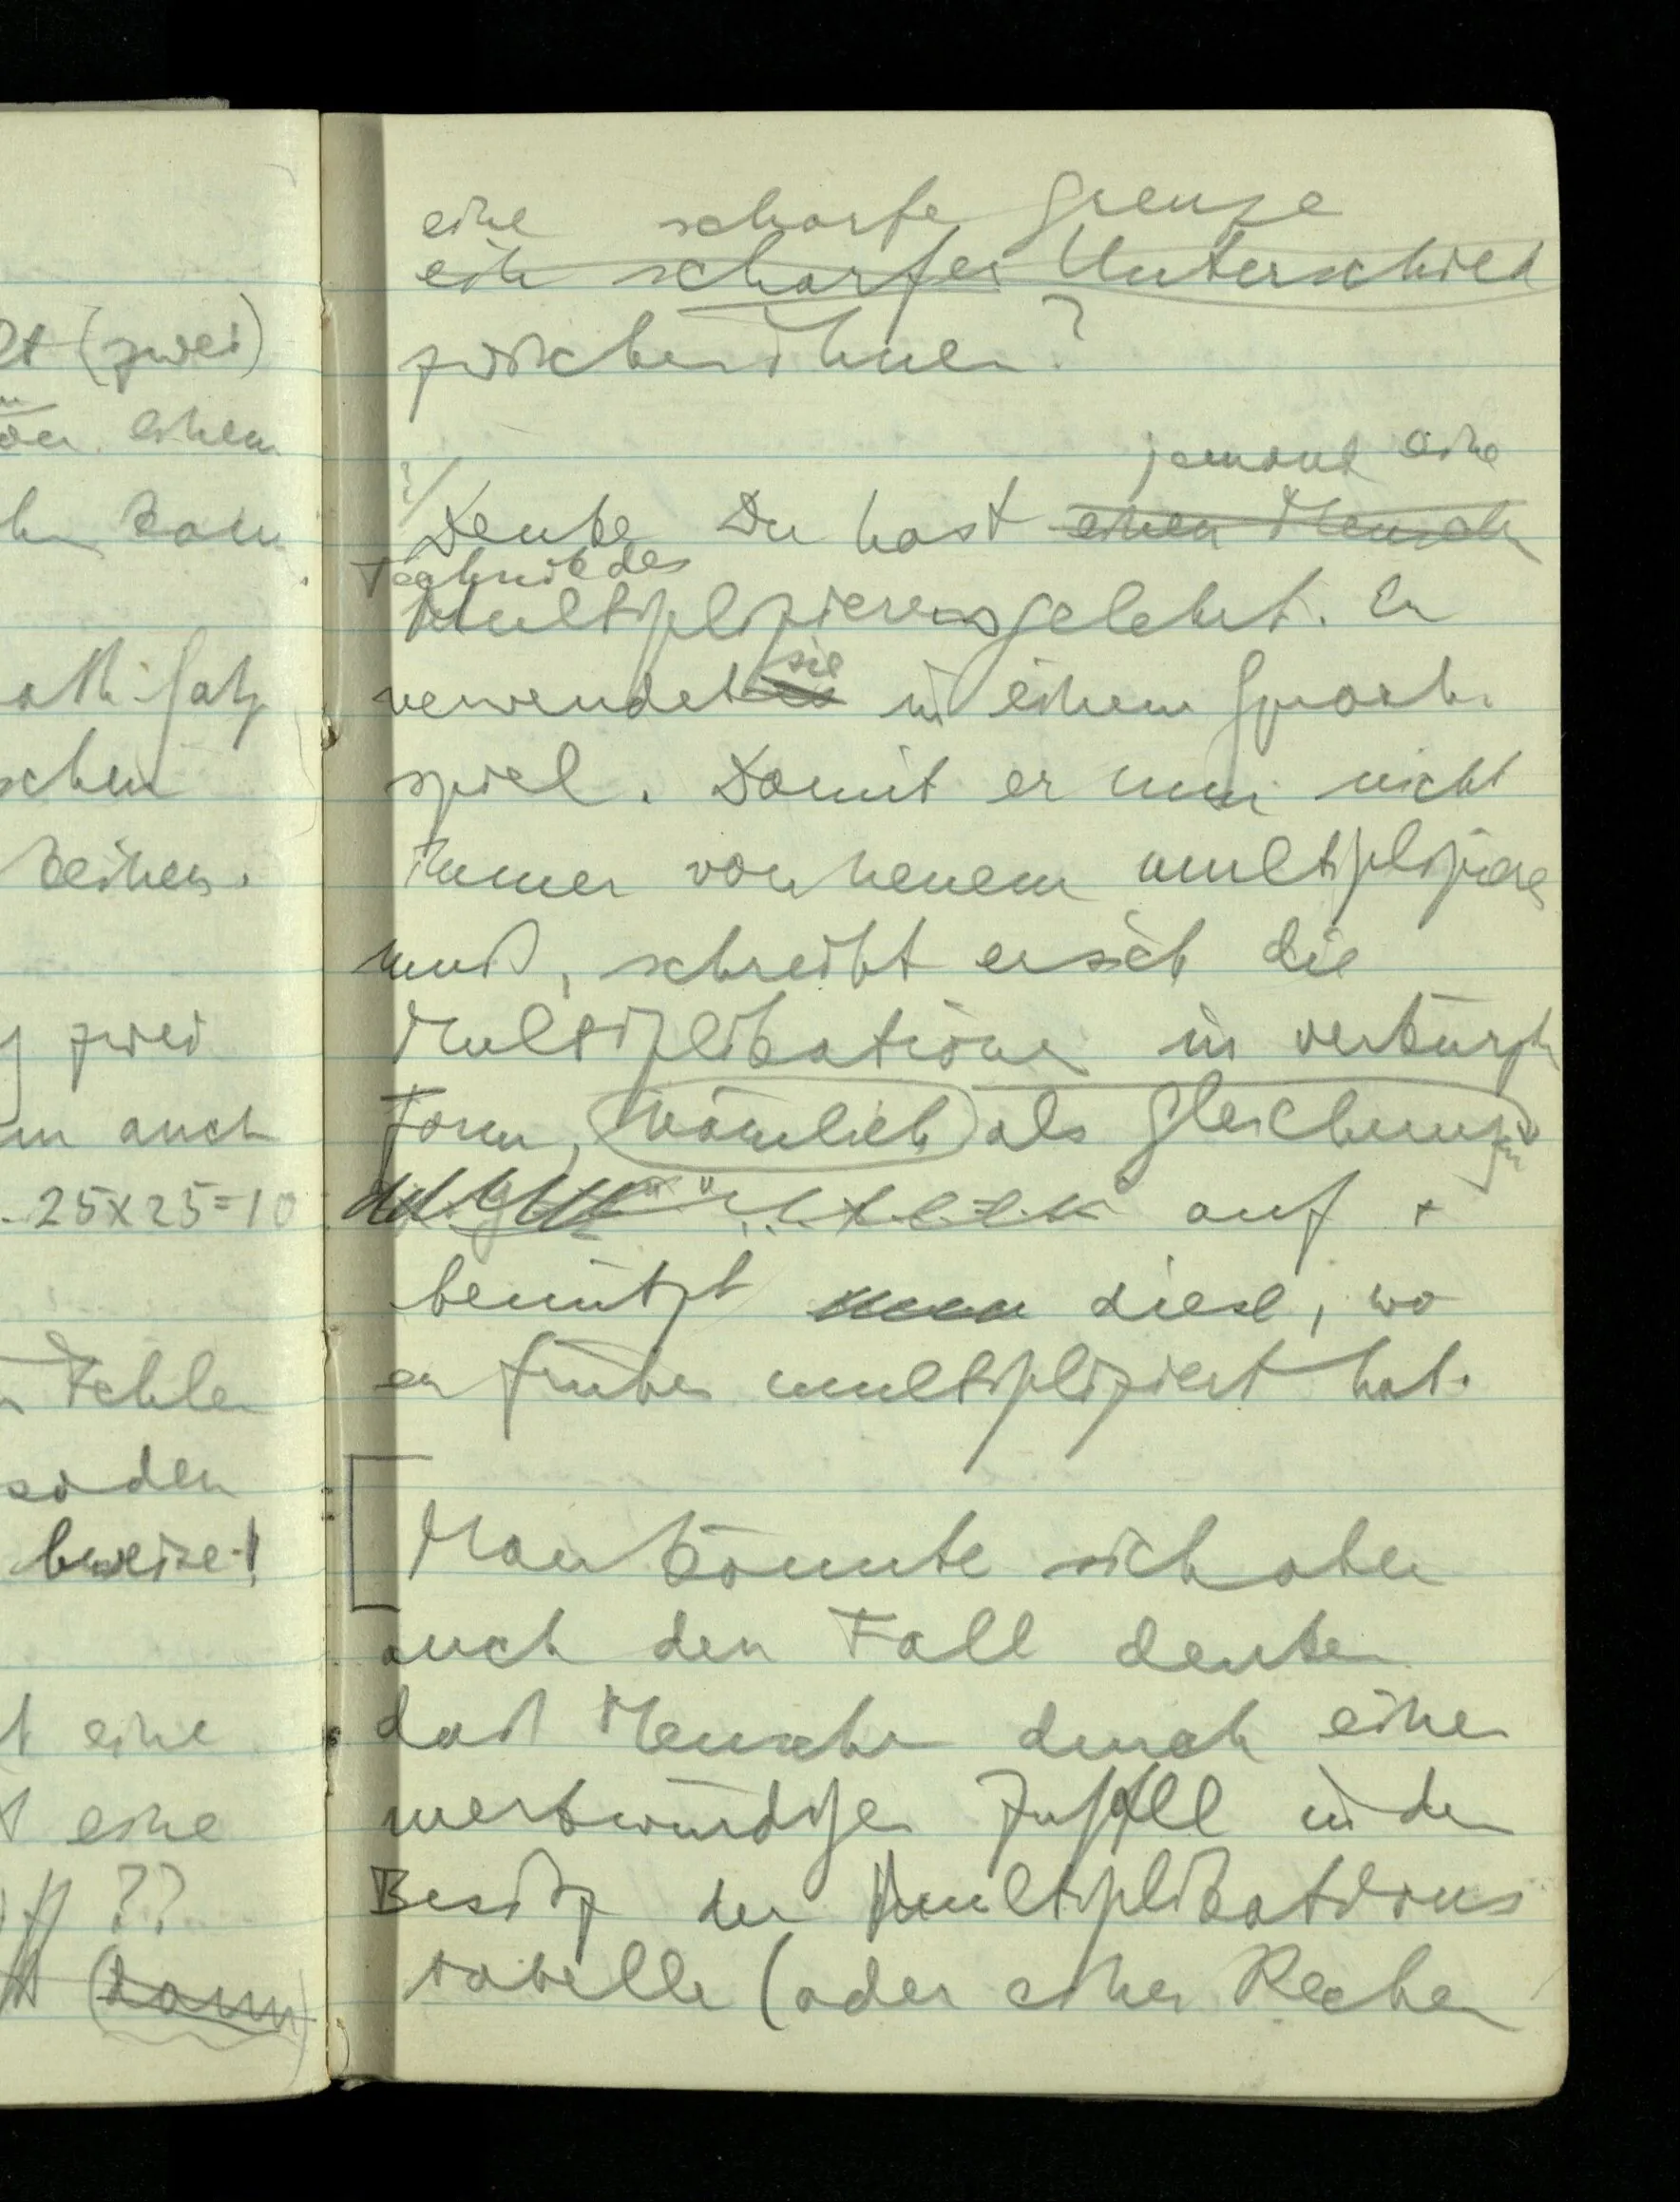 lt (zwei)
einem
kann
ath. Satz
schen
Reihen.
zwei
auch
25x25=10
Fehler
so den
beweise!
eine
eine
??
(dann)
eine scharfe Grenze
ein scharfer Unterschied
zwischen ihnen?
jemand eine
Denke Du hast einen Mensch
Technik des
Multiplizierens gelehrt. Er
sie
verwendet es in einem Sprach-
spiel. Damit er nun nicht
immer von neuem multiplizieren
muß, schreibt er sich die
Multiplikationen in verkürzter
Form, nämlich als Gleichung
en
auf +
benützt nun diese, wo
er früher multipliziert hat.
[Man könnte sich aber
auch den Fall denken
daß Menschen durch einen
merkwürdigen Zufall in den
Besitz der Multiplikations
tabelle (oder einer Rechen